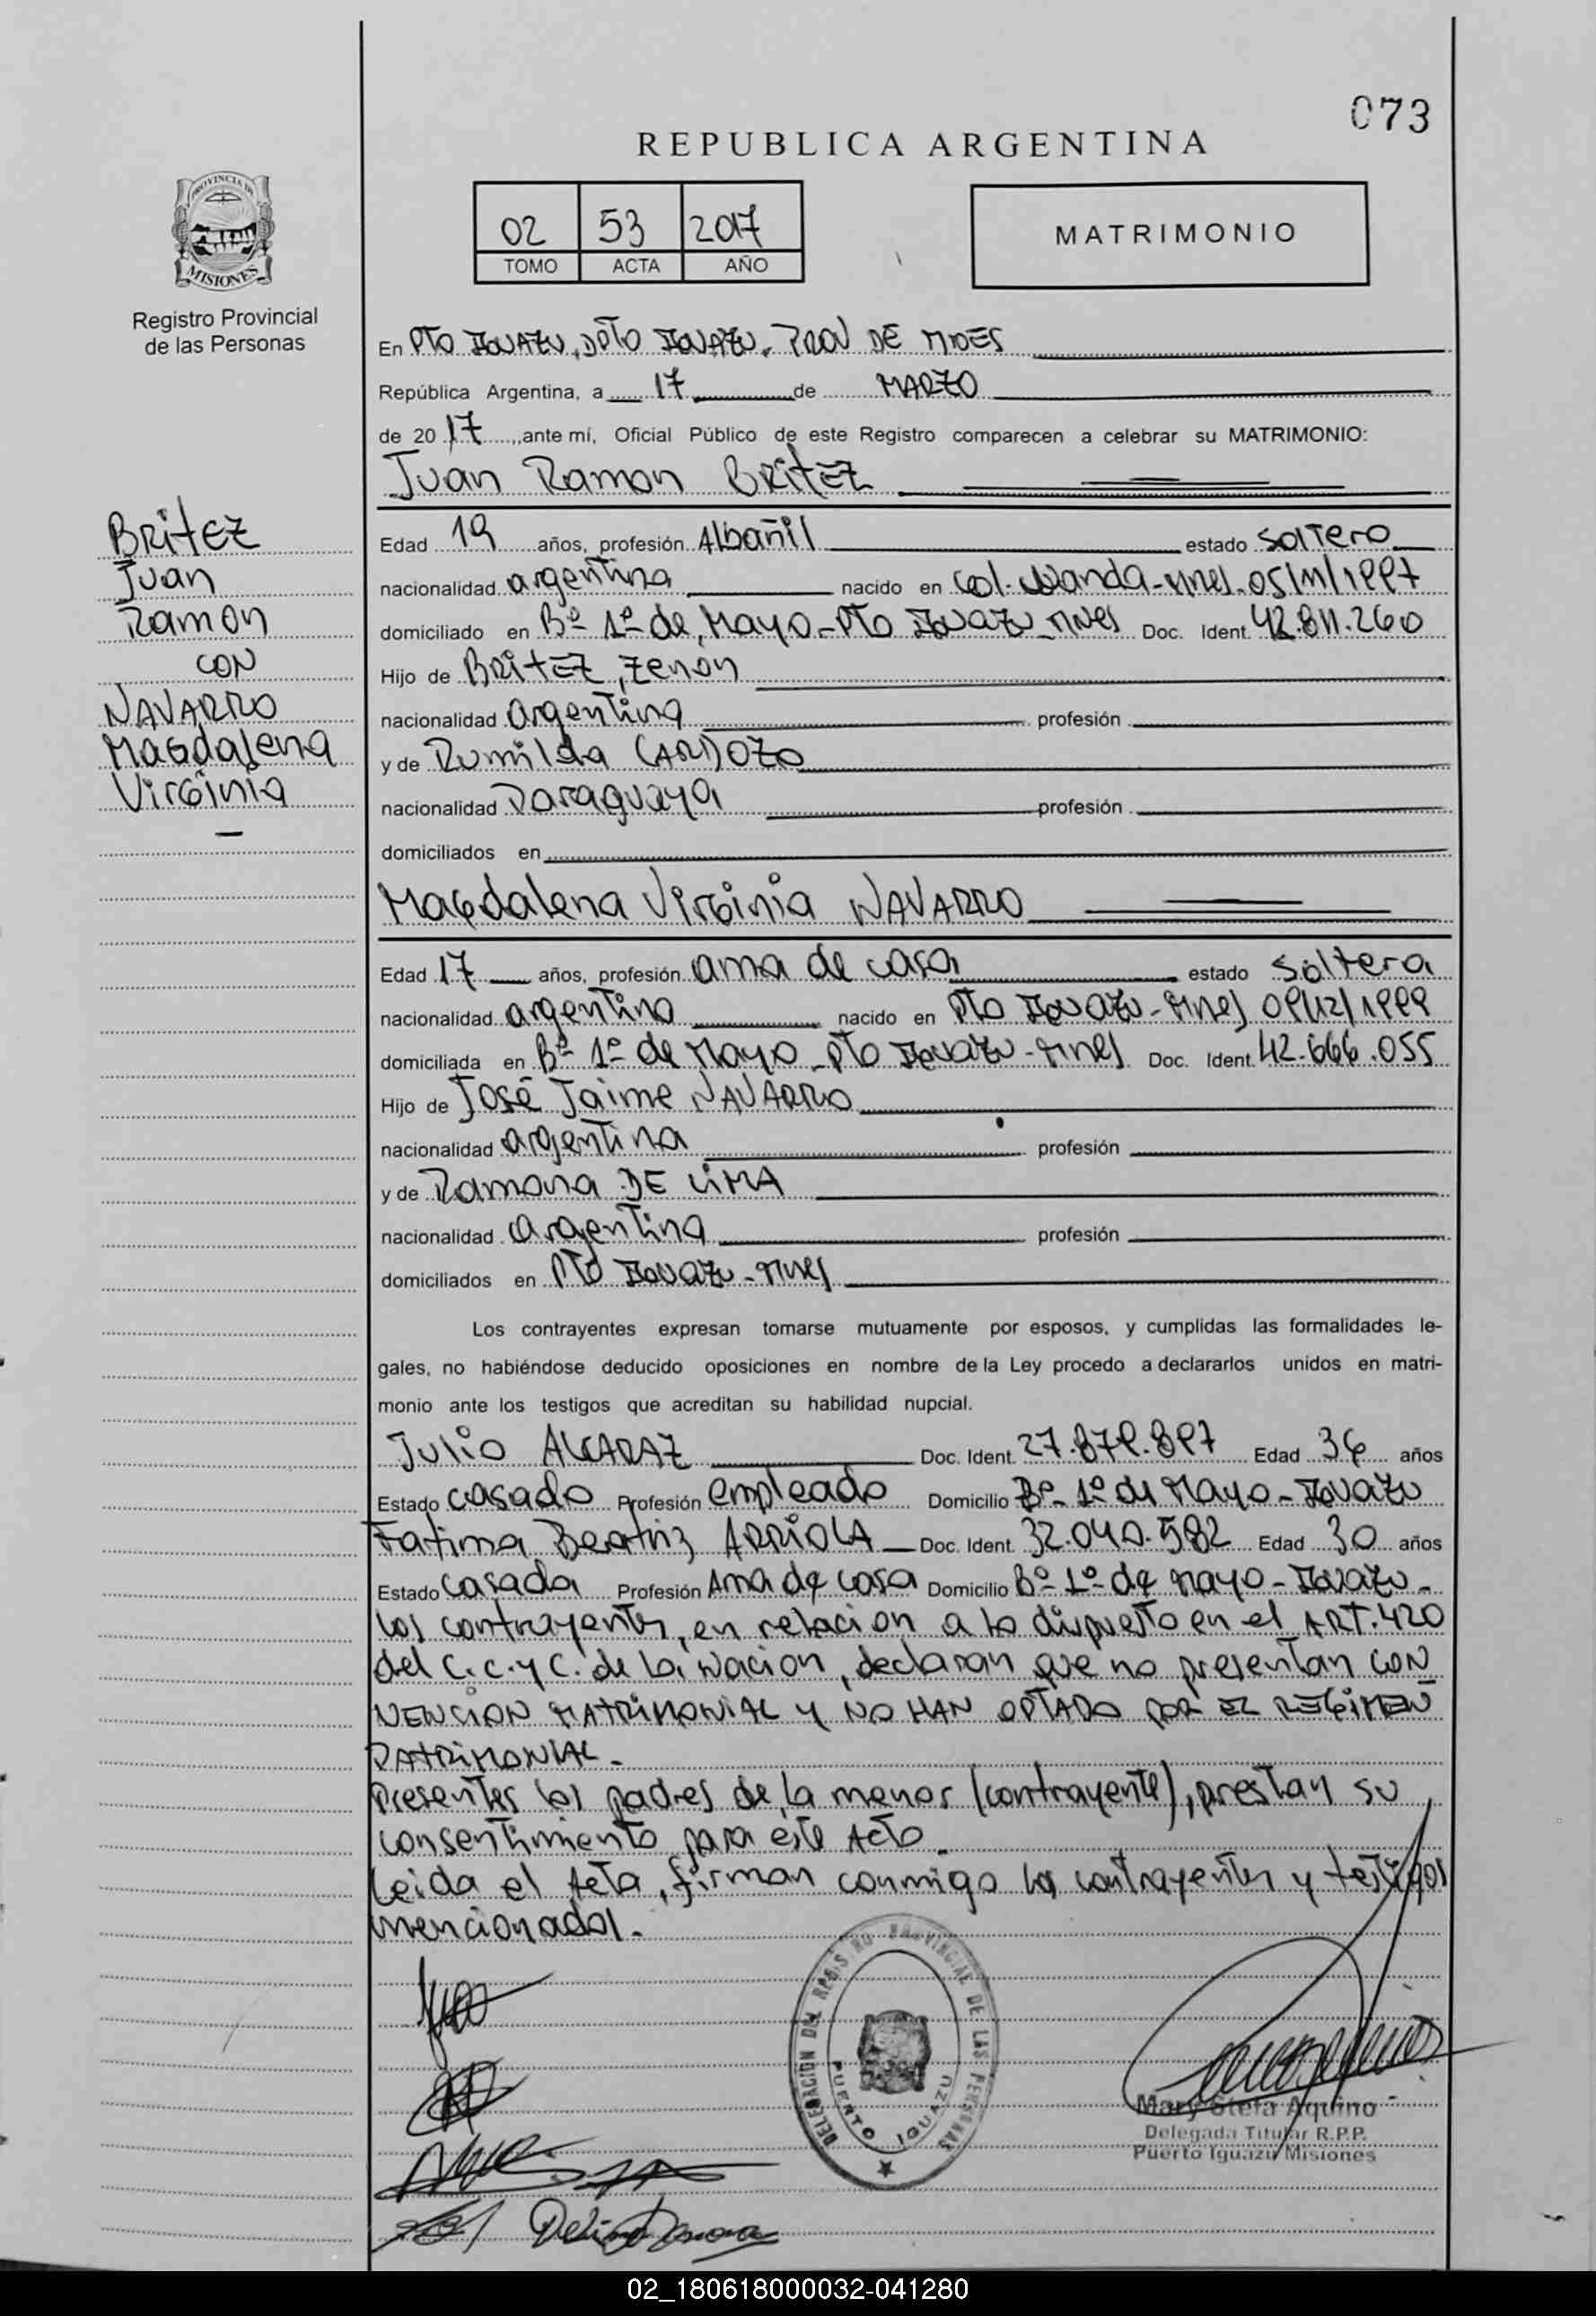 073
REPUBLICA ARGENTINA
02 53 2017
TOMO ACTA AÑO
MATRIMONIO
PROVINCIA DE
MISIONES
Registro Provincial
de las Personas
En PTO IGUAZU, DPTO IGUAZU. PROV DE MNES
República Argentina, a 17 de MARZO
de 20 17, ante mí, Oficial Público de este Registro comparecen a celebrar su MATRIMONIO:
Juan Ramon BRITEZ
BRITEZ
Juan
Ramon
CON
NAVARRO
Magdalena
Virginia
Edad 19 años, profesión Albañil estado soltero
nacionalidad argentina nacido en Col. Wanda-Mnes. 05/11/1997
domiciliado en Bº 1º de Mayo-Pto Iguazu-Mnes Doc. Ident. 42.811.260
Hijo de BRITEZ, Zenon
nacionalidad argentina profesión
y de Rumilda CARDOZO
nacionalidad Paraguaya profesión
domiciliados en
Magdalena Virginia NAVARRO
Edad 17 años, profesión ama de casa estado soltera
nacionalidad argentina nacido en Pto Iguazu-Mnes 09/12/1999
domiciliada en Bº 1º de Mayo-Pto Iguazu-Mnes. Doc. Ident. 42.666.055
Hijo de José Jaime NAVARRO
nacionalidad argentina profesión
y de Ramona DE LIMA
nacionalidad argentina profesión
domiciliados en Pto Iguazu-Mnes
Los contrayentes expresan tomarse mutuamente por esposos, y cumplidas las formalidades le-
gales, no habiéndose deducido oposiciones en nombre de la Ley procedo a declararlos unidos en matri-
monio ante los testigos que acreditan su habilidad nupcial.
Julio ALCARAZ Doc. Ident. 27.879.897 Edad 36 años
Estado casado Profesión empleado Domicilio Bº 1º de Mayo-Iguazu
Fatima Beatriz ARRIOLA Doc. Ident. 32.040.582 Edad 30 años
Estado casada Profesión Ama de casa Domicilio Bº 1º de Mayo-Iguazu-
Los contrayentes, en relacion a lo dispuesto en el ART. 420
del C.C. y C. de la Nacion, declaran que no presentan CON
VENCION MATRIMONIAL Y NO HAN OPTADO POR EL REGIMEN
PATRIMONIAL.
Presentes los padres de la menor (contrayente), prestan su
consentimiento para este Acto.
Leida el Acta, firman conmigo los contrayentes y testigos
mencionados.
DELEGACION DEL REGISTRO PROVINCIAL DE LAS PERSONAS
PUERTO IGUAZU
Mary Stela Aquino
Delegada Titular R.P.P.
Puerto Iguazú Misiones
02_180618000032-041280